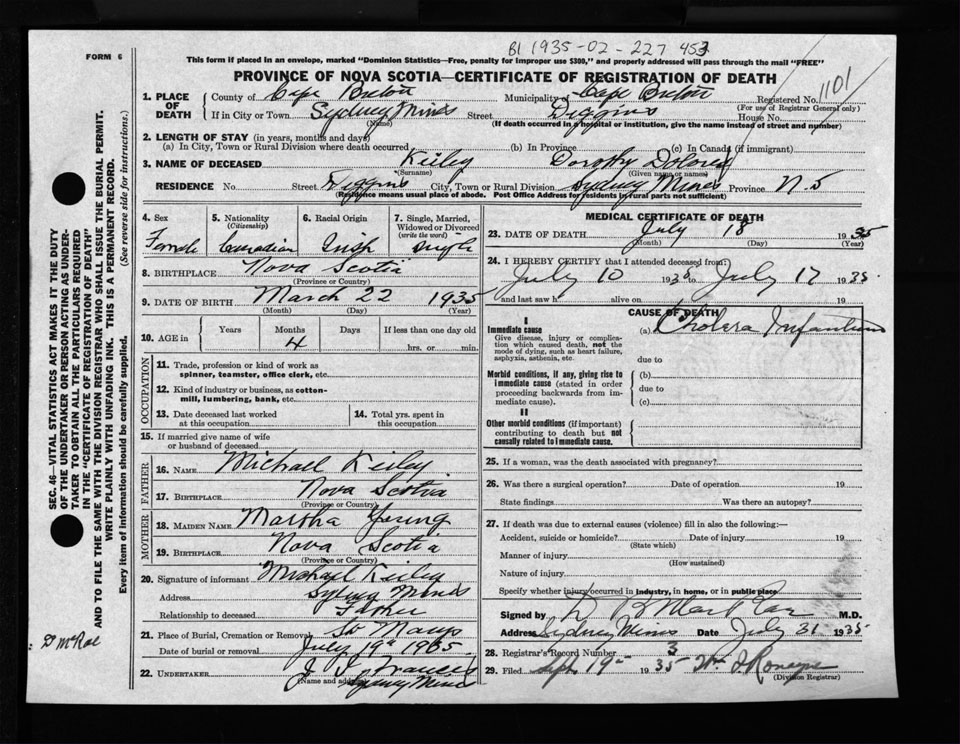 BI 1935-02-227 453
FORM 6
This form if placed in an envelope, marked "Dominion Statistics—Free, penalty for improper use $300," and properly addressed will pass through the mail "FREE"
PROVINCE OF NOVA SCOTIA—CERTIFICATE OF REGISTRATION OF DEATH
1. PLACE OF DEATH
County of Cape Breton Municipality of Cape Breton Registered No. 1101
(For use of Registrar General only)
If in City or Town Sydney Mines Street Diggins House No.
(Name) (If death occurred in a hospital or institution, give the name instead of street and number)
2. LENGTH OF STAY (in years, months and days)
(a) In City, Town or Rural Division where death occurred (b) In Province (c) In Canada (if immigrant)
3. NAME OF DECEASED Keiley Dorothy Dolores
(Surname) (Given name or names)
RESIDENCE No. Street Diggins City, Town or Rural Division Sydney Mines Province N.S
(Residence means usual place of abode. Post Office Address for residents in rural parts not sufficient)
4. Sex Female
5. Nationality (Citizenship) Canadian
6. Racial Origin Irish
7. Single, Married, Widowed or Divorced (write the word) Single
8. BIRTHPLACE Nova Scotia
(Province or Country)
9. DATE OF BIRTH March 22 1935
(Month) (Day) (Year)
10. AGE in Years Months 4 Days If less than one day old hrs. or min.
OCCUPATION
11. Trade, profession or kind of work as spinner, teamster, office clerk, etc.
12. Kind of industry or business, as cotton-mill, lumbering, bank, etc.
13. Date deceased last worked at this occupation
14. Total yrs. spent in this occupation
15. If married give name of wife or husband of deceased
FATHER
16. NAME Michael Keiley
17. BIRTHPLACE Nova Scotia
(Province or Country)
MOTHER
18. MAIDEN NAME Martha Young
19. BIRTHPLACE Nova Scotia
(Province or Country)
20. Signature of informant Michael Keiley
Address Sydney Mines
Relationship to deceased Father
21. Place of Burial, Cremation or Removal St Marys
Date of burial or removal July 19th 1935
22. UNDERTAKER
(Name and address) Sydney Mines
MEDICAL CERTIFICATE OF DEATH
23. DATE OF DEATH July 18 1935
(Month) (Day) (Year)
24. I HEREBY CERTIFY that I attended deceased from:
July 10 1935 to July 17 1935
and last saw h alive on 19
CAUSE OF DEATH
I
Immediate cause
Give disease, injury or complication which caused death, not the mode of dying, such as heart failure, asphyxia, asthenia, etc.
(a) Cholera Infantum
due to
Morbid conditions, if any, giving rise to immediate cause (stated in order proceeding backwards from immediate cause).
(b)
due to
(c)
II
Other morbid conditions (if important) contributing to death but not causally related to immediate cause.
25. If a woman, was the death associated with pregnancy?
26. Was there a surgical operation? Date of operation 19
State findings Was there an autopsy?
27. If death was due to external causes (violence) fill in also the following:—
Accident, suicide or homicide? Date of injury 19
(State which)
Manner of injury
(How sustained)
Nature of injury
Specify whether injury occurred in industry, in home, or in public place
Signed by M.D.
Address Sydney Mines Date July 31 1935
28. Registrar's Record Number 3
29. Filed Sept 19th 1935
(Division Registrar)
SEC. 46—VITAL STATISTICS ACT MAKES IT THE DUTY
OF THE UNDERTAKER OR PERSON ACTING AS UNDER-
TAKER TO OBTAIN ALL THE PARTICULARS REQUIRED
IN THE "CERTIFICATE OF REGISTRATION OF DEATH"
AND TO FILE THE SAME WITH THE DIVISION REGISTRAR WHO SHALL ISSUE THE BURIAL PERMIT.
WRITE PLAINLY WITH UNFADING INK. THIS IS A PERMANENT RECORD.
Every item of information should be carefully supplied. (See reverse side for instructions.)
D McRae